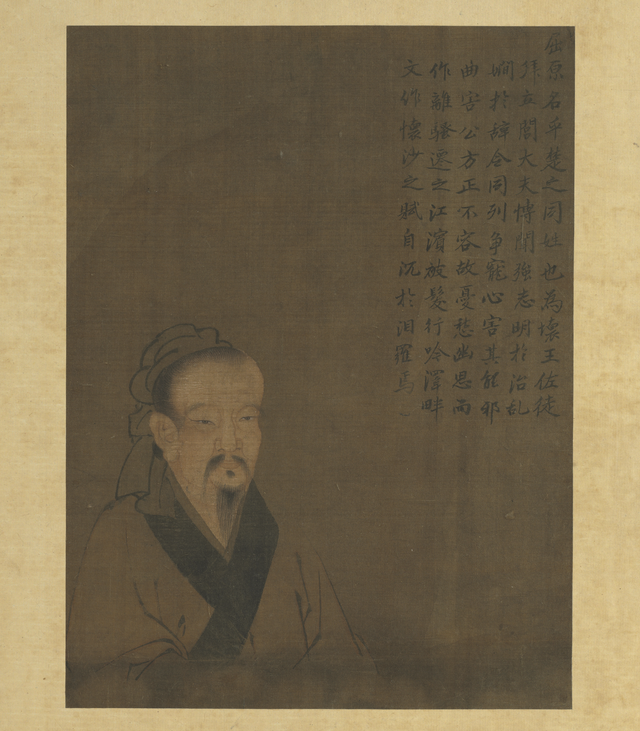 屈原名平楚之同姓也為壞王佐徒
閭大夫博聞強志明於治乱
嫺於辭令同列爭寵心害其能邪
曲害公方正不容故憂愁幽思而
作離騷遷之江濱被髮行吟澤畔
文作懷沙之賦自沉於汨羅焉